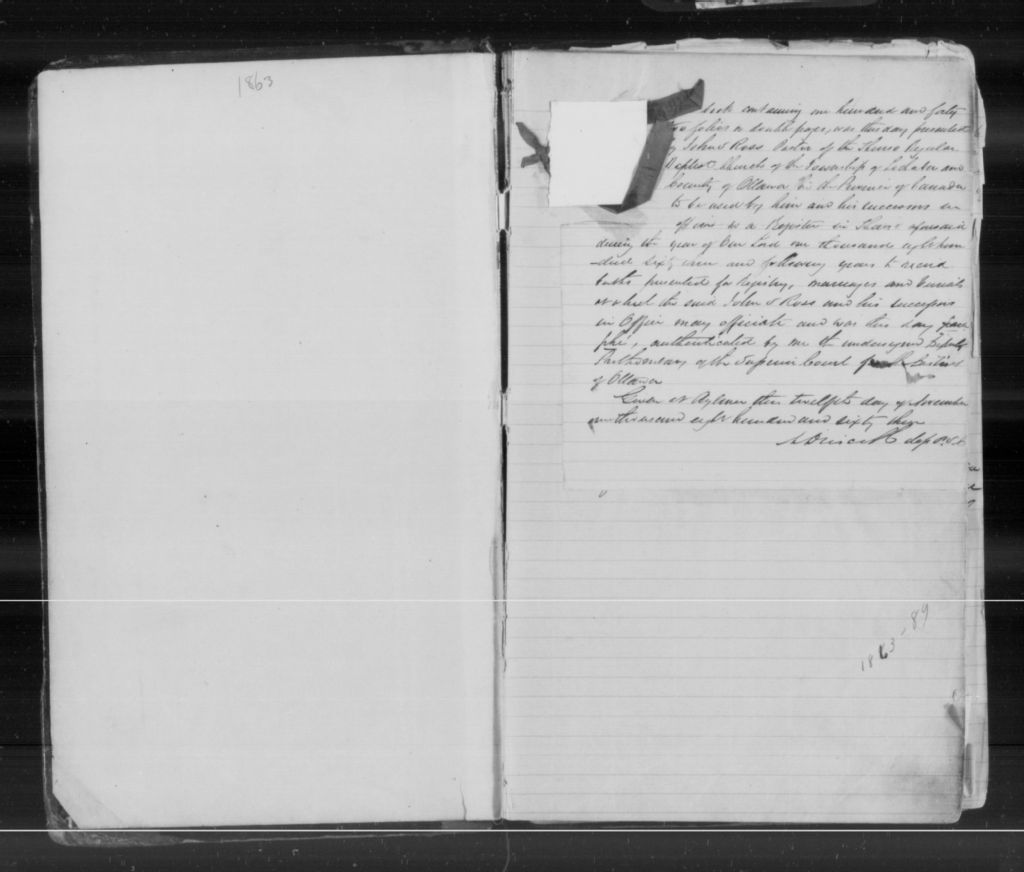 1863
book containing one hundred and forty
two folios or double pages, was this day presented
by John S Ross Pastor of the Thurso Regular
Baptist Church of the Township of Lochaber and
County of Ottawa in the Province of Canada
to be used by him and his successors in
office as a Register in Thurso aforesaid
during the year of Our Lord one thousand eight hun
-dred sixty and following years to record
births presented for Registry, marriages and burials
at which the said John S Ross and his successors
in Office may officiate and was this day para
phé, authenticated by me the undersigned Deputy
Prothonotary of the Superior Court for the District
of Ottawa
Given at Aylmer this twelfth day of November
one thousand eight hundred and sixty three
Dep P.S.C
1863-89